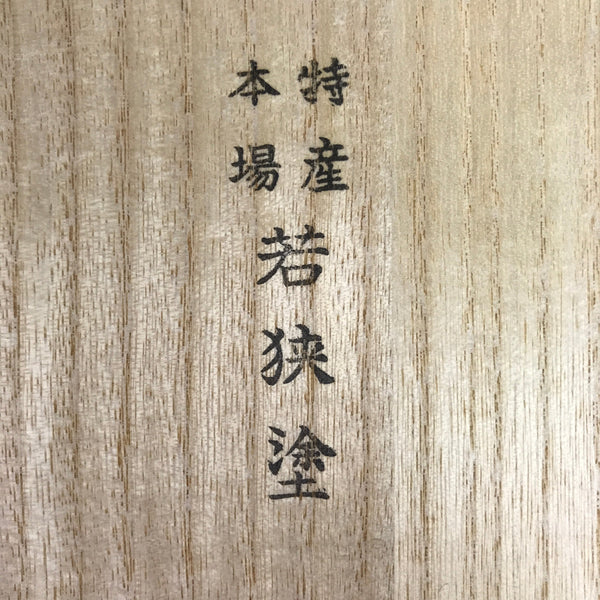 特産
本場
若狭塗